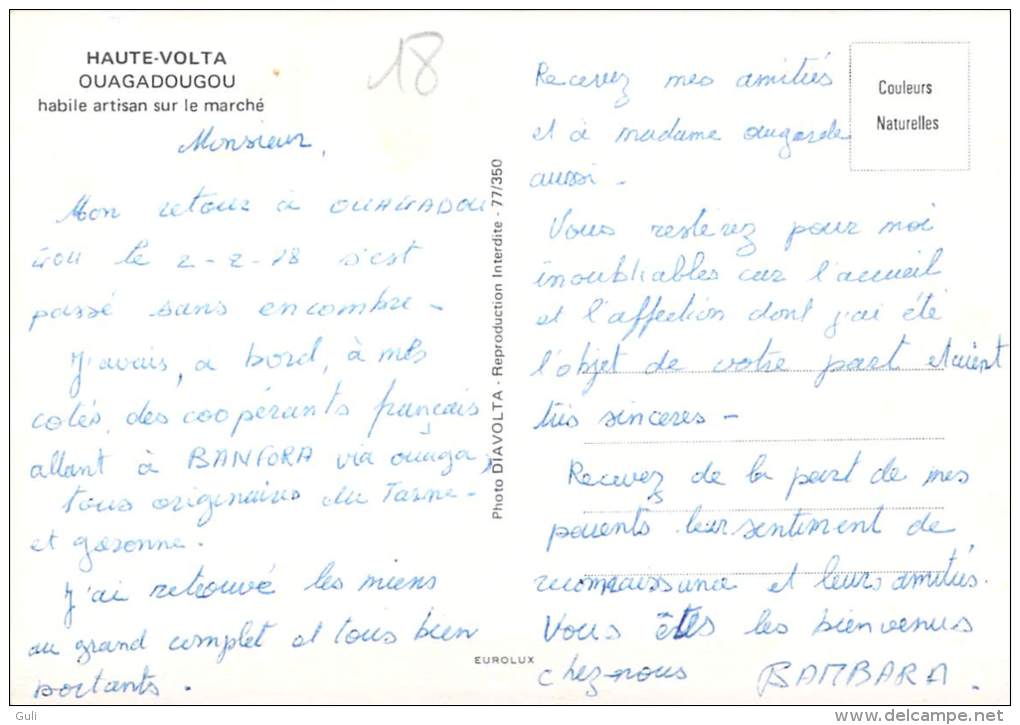 HAUTE-VOLTA
OUAGADOUGOU
habile artisan sur le marché
18
Monsieur,
Mon retour à OUAGADOU
GOU le 2-2-78 s'est
passé sans encombre -
J'avais, a bord, à mes
cotés, des coopérants français
allant à BANFORA via ouaga,
tous originaires du Tarne-
et garonne.
J'ai retrouvé les miens
au grand complet et tous bien
portants.
Photo DIAVOLTA - Reproduction Interdite - 77/350
EUROLUX
Couleurs
Naturelles
Recevez mes amitiés
et à madame
aussi -
Vous resterez pour moi
inoubliables car l'accueil
et l'affection dont j'ai été
l'objet de votre part etaient
très sinceres -
Recevez de la part de mes
parents leur sentiment de
reconnaissance et leurs amitiés.
Vous êtes les bienvenus
chez-nous BAMBARA.
Guli
delcampe.net